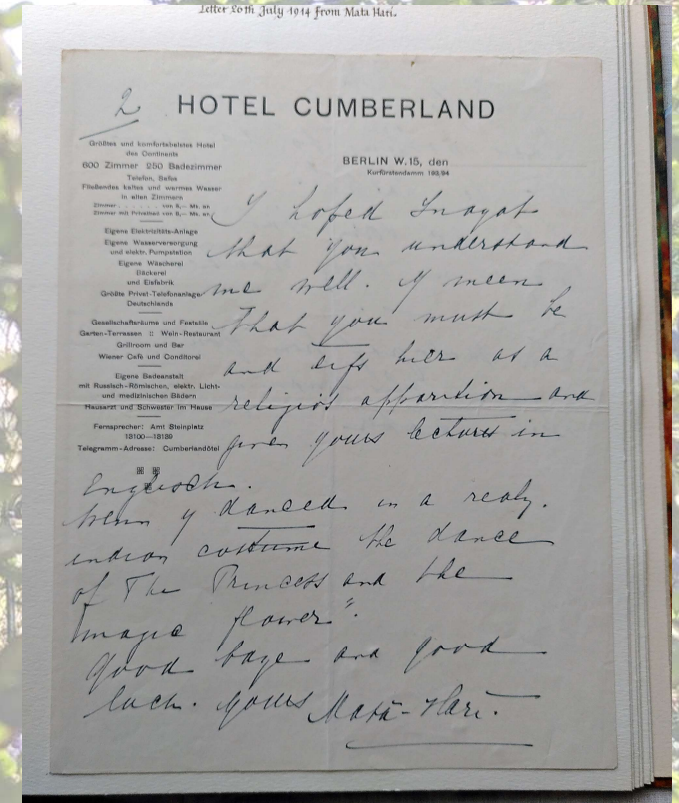 Letter 20th July 1914 from Mata Hari.
2
HOTEL CUMBERLAND
Größtes und komfortabelstes Hotel
des Continents
600 Zimmer 250 Badezimmer
Telefon, Safes
Fließendes kaltes und warmes Wasser
in allen Zimmern
Zimmer . . . . . . . von 5,— Mk. an.
Zimmer mit Privatbad von 8,— Mk. an.
Eigene Elektrizitäts-Anlage
Eigene Wasserversorgung
und elektr. Pumpstation
Eigene Wäscherei
Bäckerei
und Eisfabrik
Größte Privat-Telefonanlage
Deutschlands
Gesellschaftsräume und Festsäle
Garten-Terrassen :: Wein-Restaurant
Grillroom und Bar
Wiener Café und Conditorei
Eigene Badeanstalt
mit Russisch-Römischen, elektr. Licht-
und medizinischen Bädern
Hausarzt und Schwester im Hause
Fernsprecher: Amt Steinplatz
13100—13189
Telegramm-Adresse: Cumberlandôtel
BERLIN W.15, den
Kurfürstendamm 193/94
I hofed Inayat
that you understand
me well. I meen
that you must be
and hier as a
religio's apparition and
given yours lectures in
Englisch.
I danced in a realy.
indian costume the dance
of The Princess and the
magic flower".
Good baye and good
luck. yours Mata-Hari.